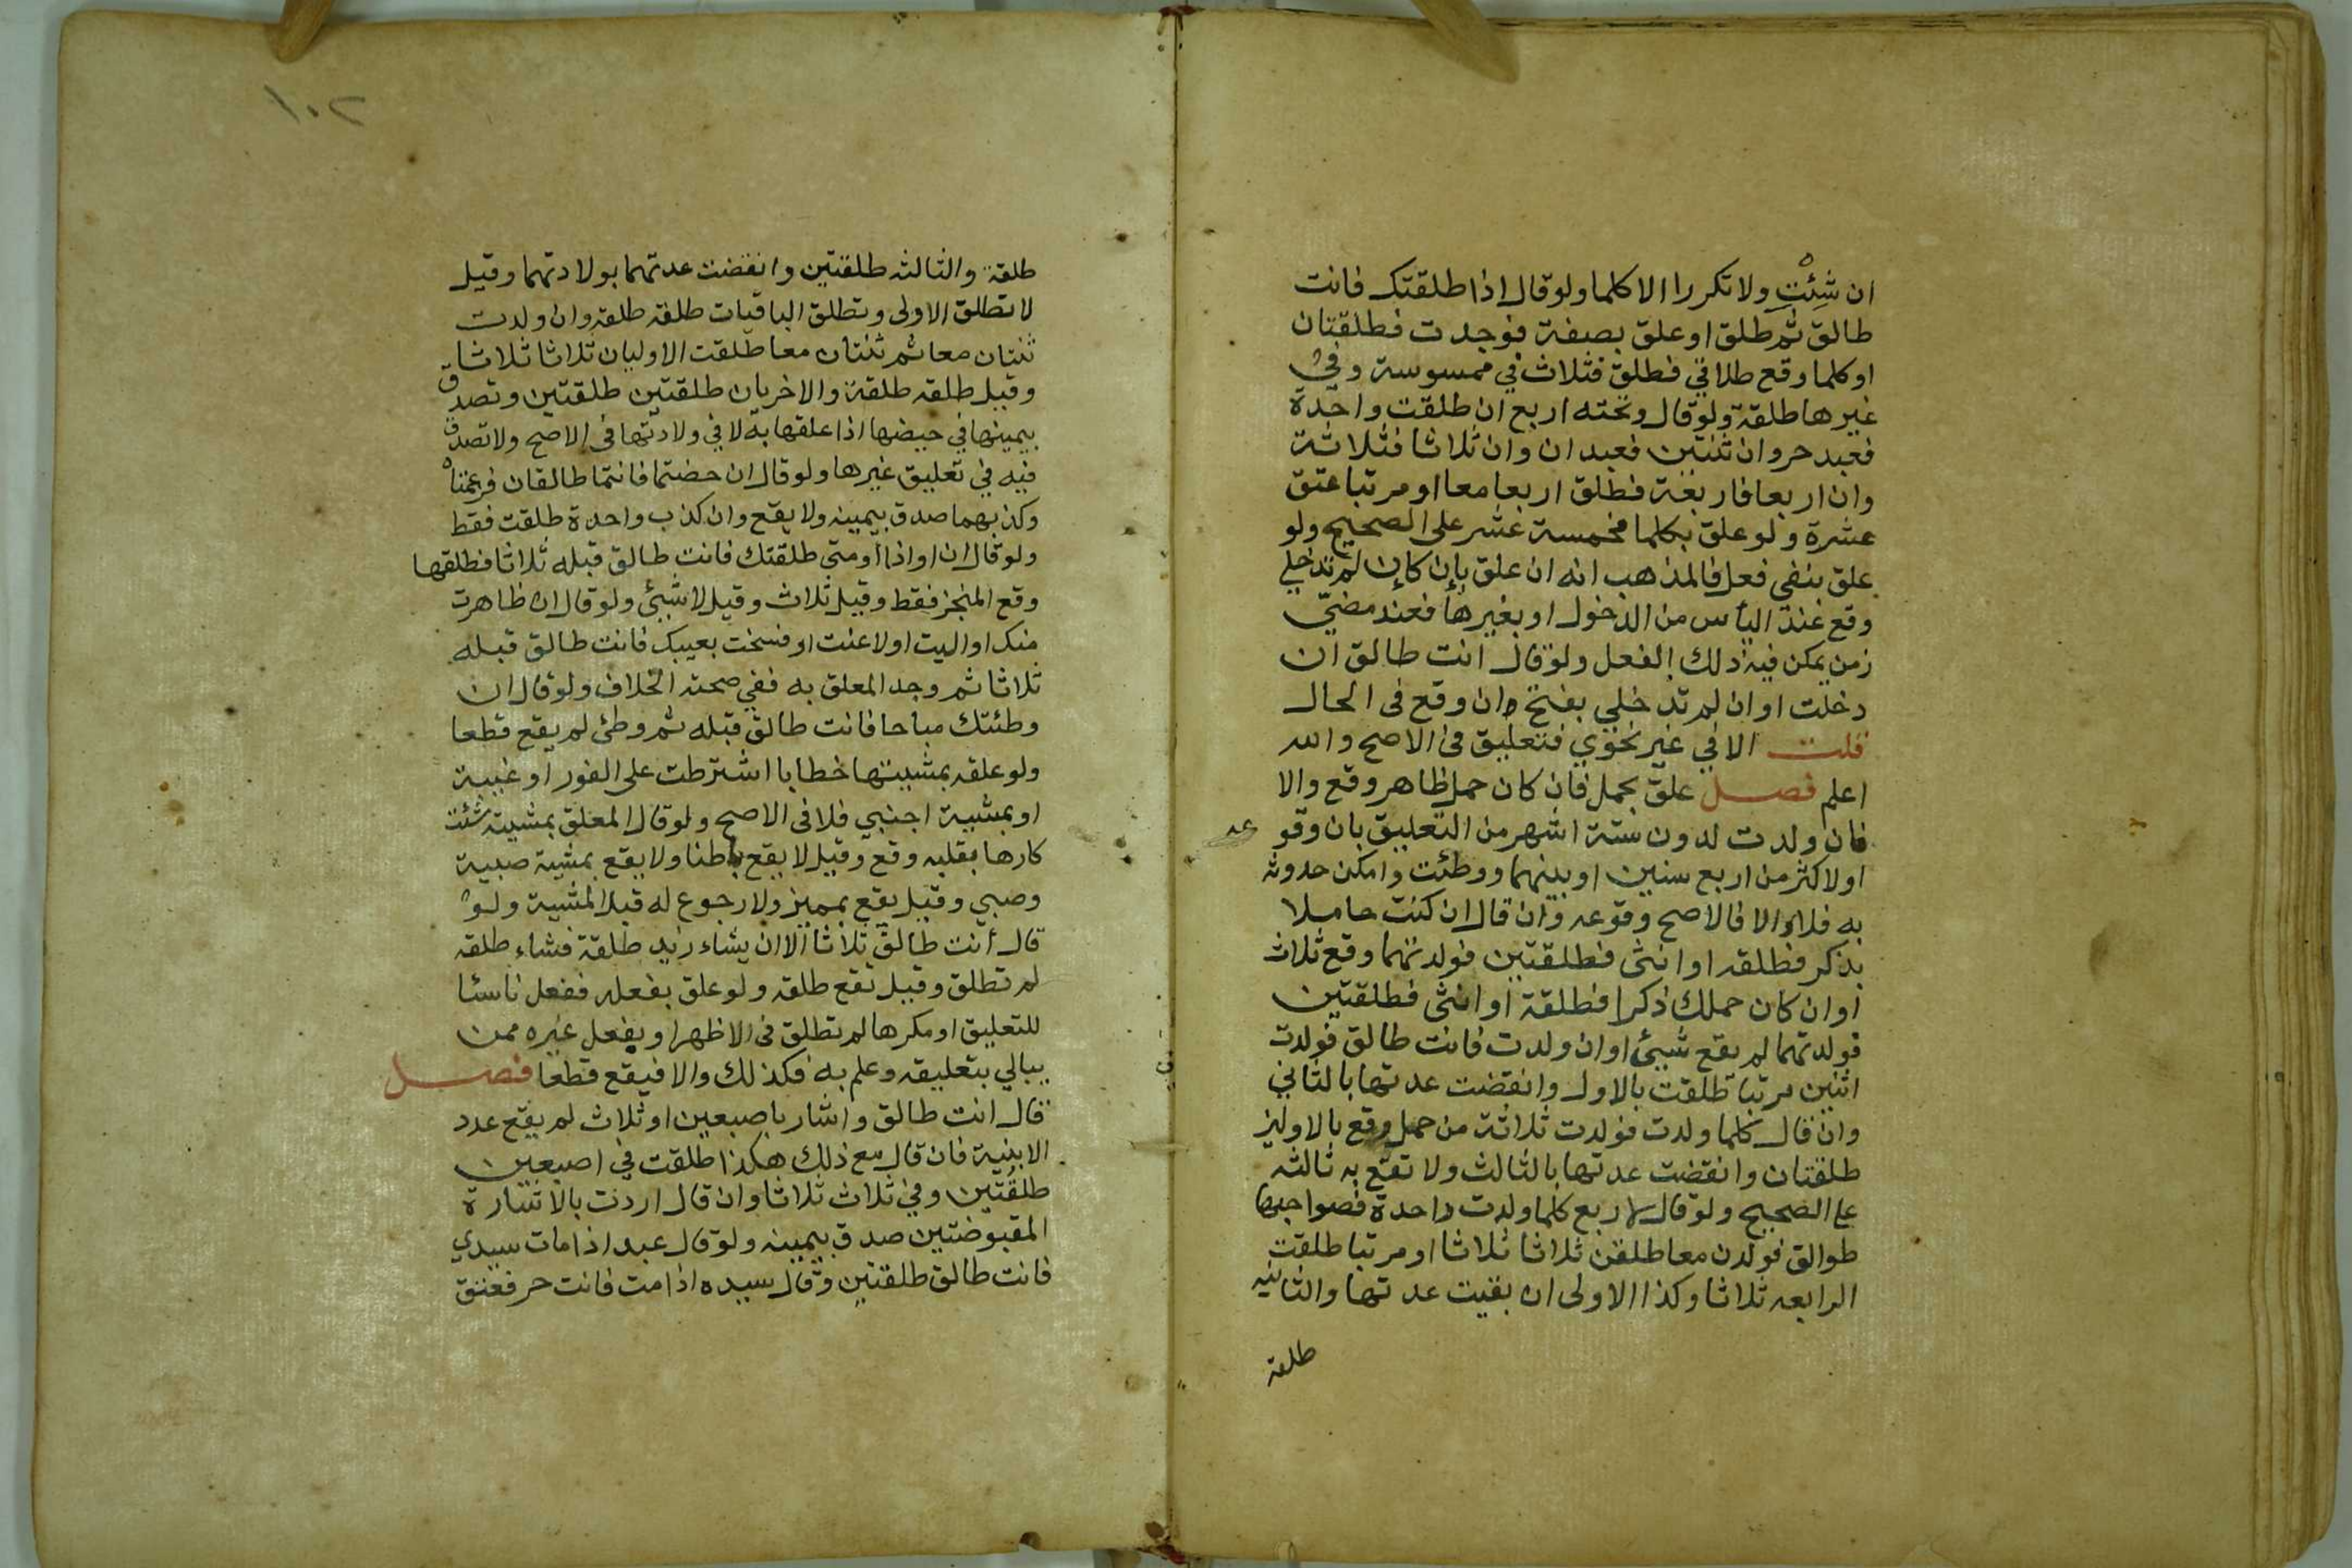 ان شئت ولا تكررا الا كلما ولو قال اذا طلقتك فانت
طالق ثم طلق او علق بصفة فوجدت فطلقتان
او كلما وقع طلاقي فطلق فثلاث في ممسوسة وفي
غيرها طلقة ولو قال وتحته اربع ان طلقت واحدة
فعبد حر وان ثنتين فعبدان وان ثلاثا فثلاثة
وان اربعا فاربعة فطلق اربعا معا او مرتبا عتق
عشرة ولو علق بكلما فخمسة عشر على الصحيح ولو
علق بنفي فعل فالمذهب انه ان علق بإن كإن لم تدخلي
وقع عند اليأس من الدخول او بغيرها فعند مضيّ
زمن يمكن فيه ذلك الفعل ولو قال انت طالق ان
دخلت او ان لم تدخلي بفتح ان وقع فى الحال
قلت الا في غير نحوي فتعليق فى الاصح والله
اعلم فصل علق بحمل فان كان حمل ظاهر وقع والا
فان ولدت لدون ستة اشهر من التعليق بان وقوعه
او لاكثر من اربع سنين او بينهما ووطئت وامكن حدوثه
به فلا والا فالاصح وقوعه وان قال ان كنت حاملا
بذكر فطلقه او انثى فطلقتين فولدتهما وقع ثلاث
او ان كان حملك ذكرا فطلقة او انثى فطلقتين
فولدتهما لم يقع شيئ او ان ولدت فانت طالق فولدت
اثنين مرتبا طلقت بالاول وانقضت عدتها بالثاني
وان قال كلما ولدت فولدت ثلاثة من حمل وقع بالاولين
طلقتان وانقضت عدتها بالثالث ولا تقع به ثالثه
على الصحيح ولو قال لاربع كلما ولدت واحدة فصواحبها
طوالق فولدن معا طلقن ثلاثا ثلاثا او مرتبا طلقت
الرابعه ثلاثا وكذا الاولى ان بقيت عدتها والثانيه
طلقة
١٠٢
طلقة والثالثه طلقتين وانقضت عدتهما بولادتهما وقيل
لا تطلق الاولى وتطلق الباقيات طلقه طلقه وان ولدت
ثنتان معا ثم ثنتان معا طلقت الاوليان ثلاثا ثلاثا
وقيل طلقه طلقة والاخريان طلقتين طلقتين وتصدق
بيمينها في حيضها اذا علقها به لا في ولادتها فى الاصح ولا تصدق
فيه في تعليق غيرها ولو قال ان حضتما فانتما طالقان فزعمتاه
وكذبهما صدق بيمينه ولا يقع وان كذب واحدة طلقت فقط
ولو قال ان او اذا او متى طلقتك فانت طالق قبله ثلاثا فطلقها
وقع المنجز فقط وقيل ثلاث وقيل لا شيئ ولو قال ان ظاهرت
منك او اليت او لاعنت او فسخت بعيبك فانت طالق قبله
ثلاثا ثم وجد المعلق به ففي صحته الخلاف ولو قال ان
وطئتك مباحا فانت طالق قبله ثم وطئ لم يقع قطعا
ولو علقه بمشيتها خطابا اشترطت على الفور او غيبة
او بمشية اجنبي فلا فى الاصح ولو قال المعلق بمشيته شئت
كارها بقلبه وقع وقيل لا يقع باطنا ولا يقع بمشية صبية
وصبي وقيل يقع بمميز ولا رجوع له قبل المشية ولو
قال أنت طالق ثلاثا الا ان يشاء زيد طلقة فشاء طلقه
لم تطلق وقيل تقع طلقه ولو علق بفعله ففعل ناسئا
للتعليق او مكرها لم تطلق فى الاظهر او بفعل غيره ممن
يبالي بتعليقه وعلم به فكذلك والا فيقع قطعا فصل
قال انت طالق واشار باصبعين او ثلاث لم يقع عدد
الا بنية فان قال مع ذلك هكذا طلقت في اصبعين
طلقتين وفي ثلاث ثلاثا وان قال اردت بالاشارة
المقبوضتين صدق بيمينه ولو قال عبد اذا مات سيدي
فانت طالق طلقتين وقال سيده اذا مت فانت حر فعتق